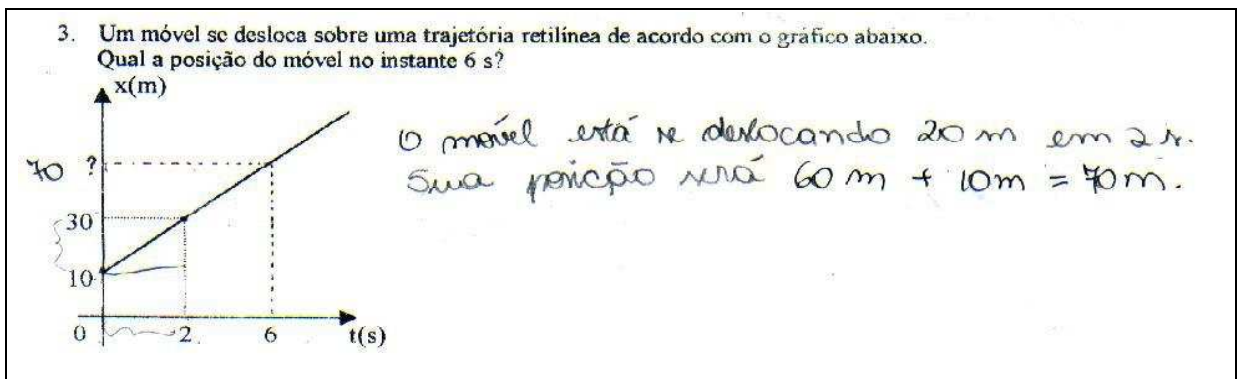 3. Um móvel se desloca sobre uma trajetória retilínea de acordo com o gráfico abaixo.
Qual a posição do móvel no instante 6 s?
x(m)
O móvel está se deslocando 20 m em 2 s.
70 ?
Sua posição será 60 m + 10m = 70m.
30
10
0 2 6 t(s)